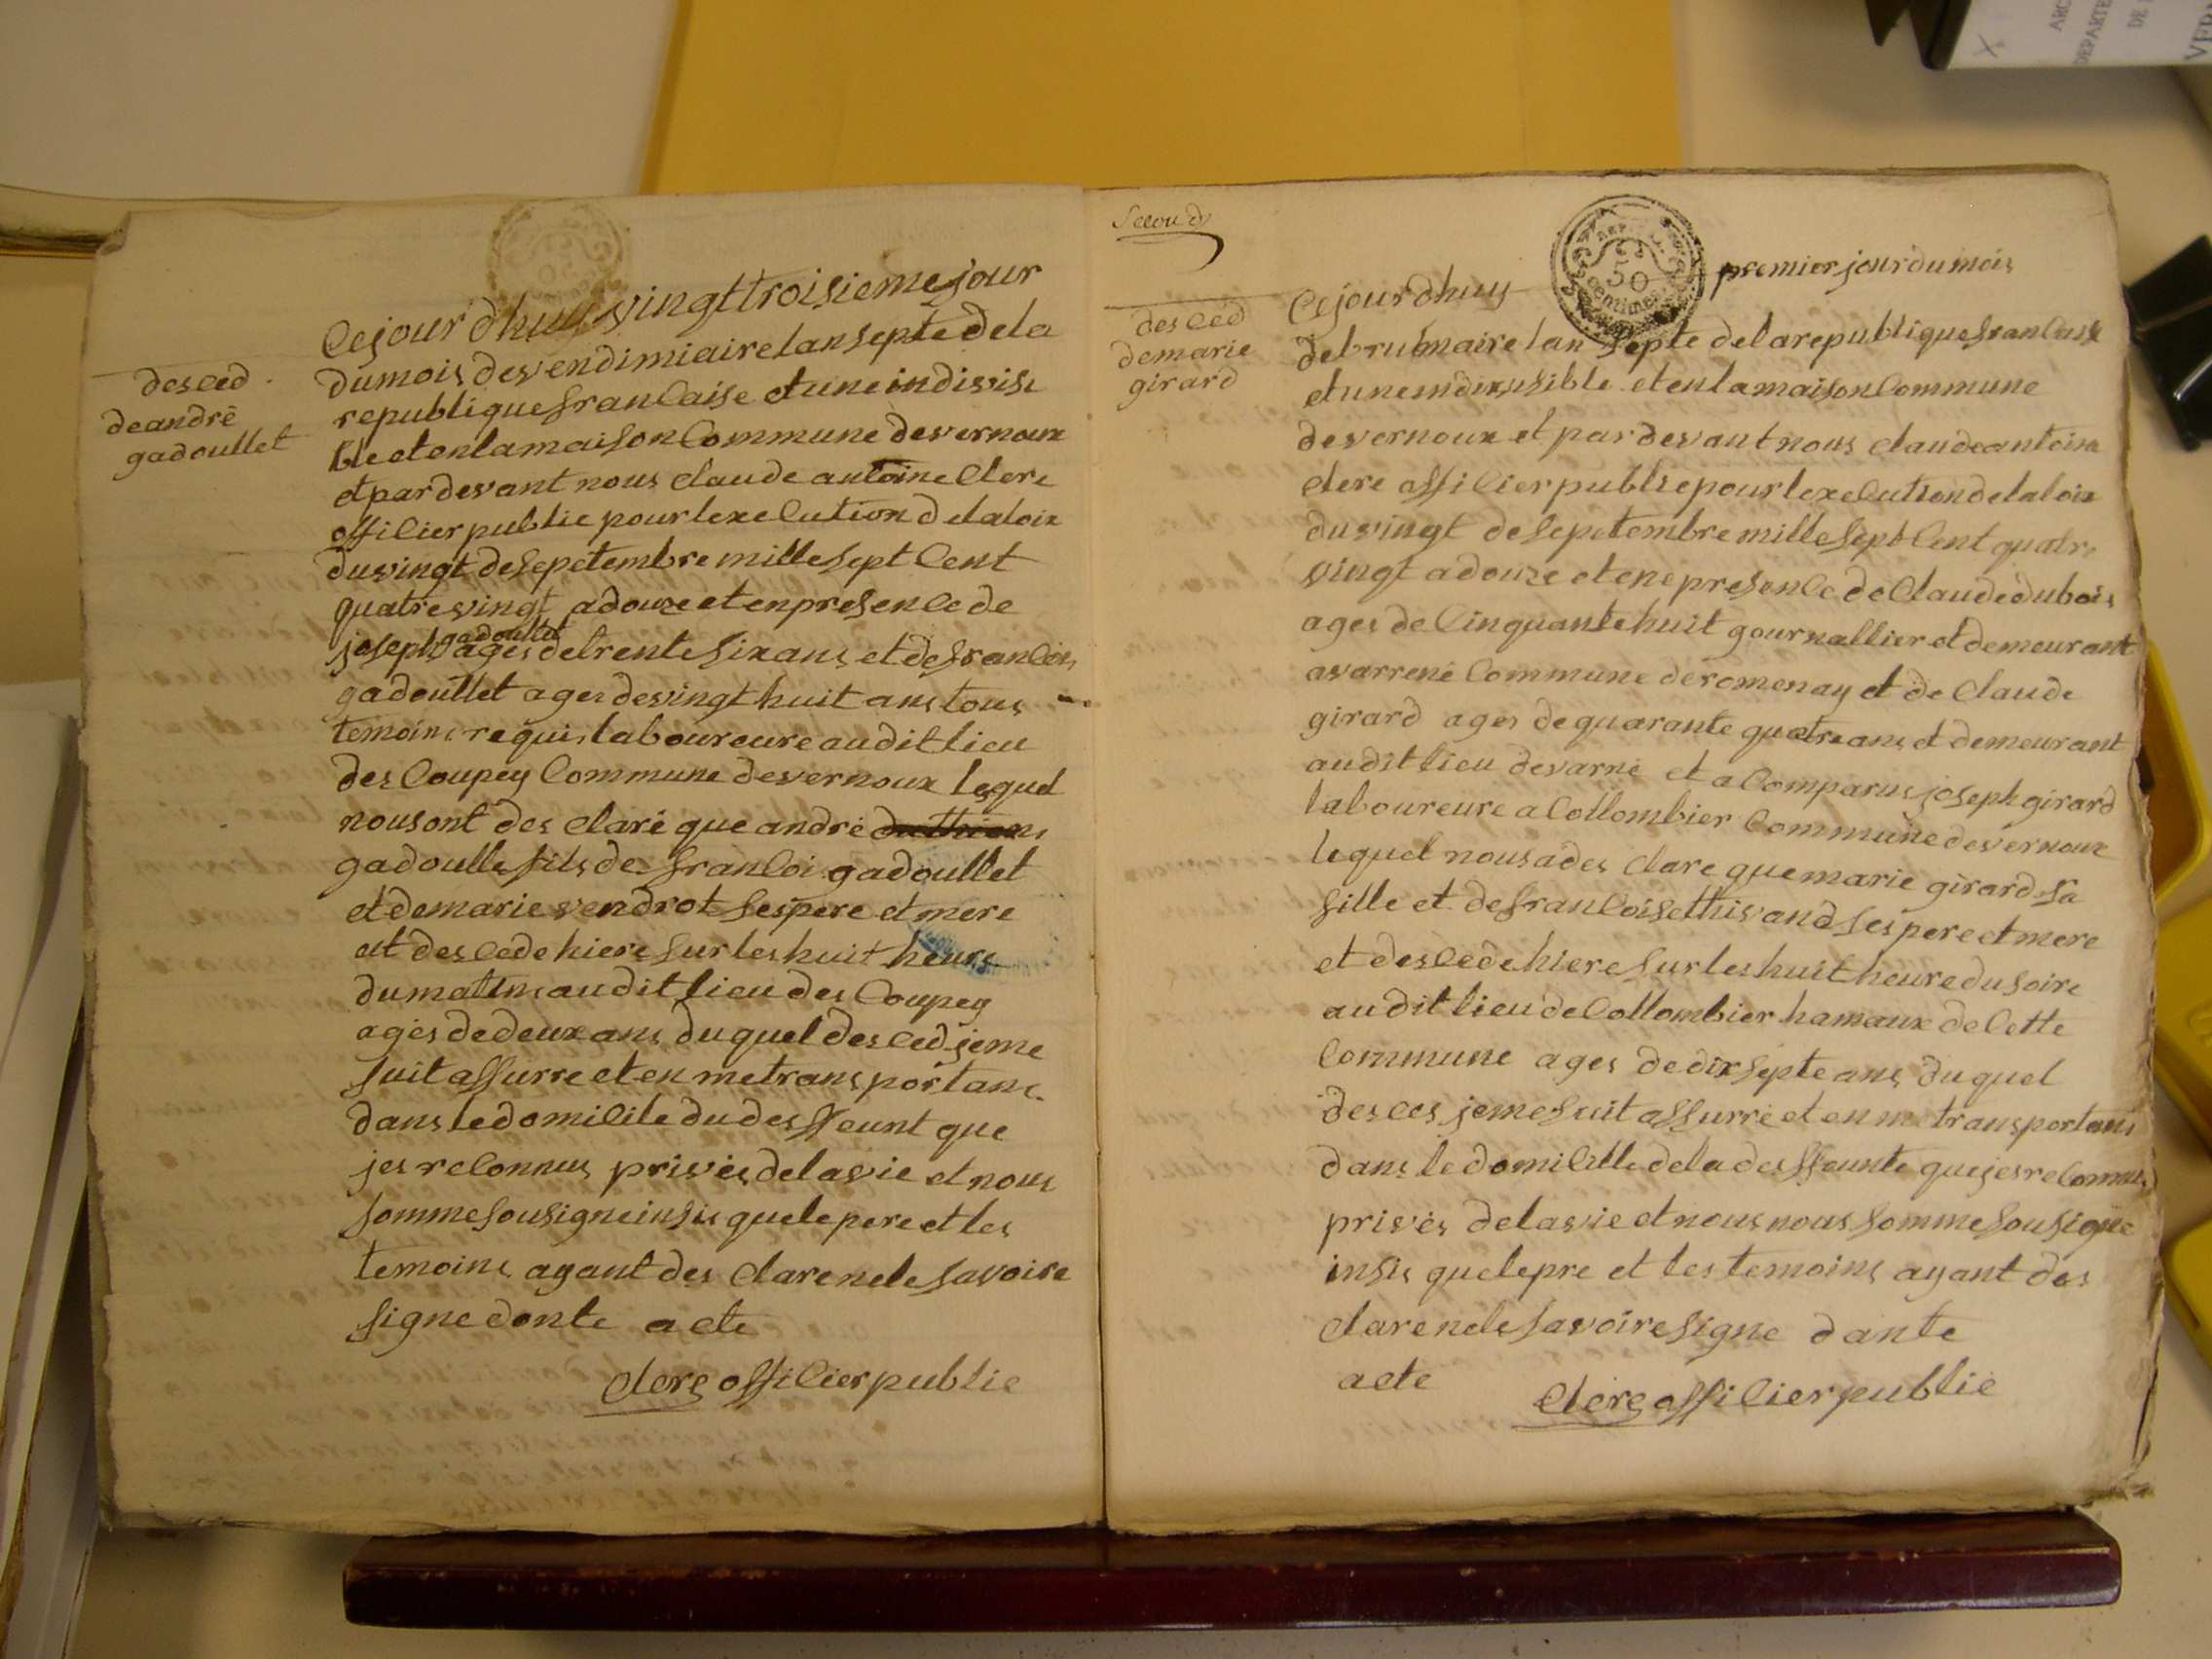 desced
deandré
gadoullet
Cejour dhuy vingttroisiemejour
dumois desvendimiairelanseptedela
republiquefrancaise etuneindivisi
ble etenlamaisonCommune devernoux
etpardevant nous claude antoine Clere
officierpublic pourlexecution delaloix
duvingt desepetembre millesept Cent
quatrevingt adouze etenpresencede
joseph gadoullet ages detrentesixans et defrancois
gadoullet ages devingt huit ans tous
temoins requis laboureure audit lieu
des Coupey Commune devernoux lequel
nousont des claré que andré
gadoulle fils de francoi gadoullet
et demarie vendrot ses pere et mere
et descede hiere sur les huit heure
dumatins audit lieu des Coupey
agés dedeux ans duquel desced jeme
suit assurre eten metransportans
dans ledomicile du desffeunt que
jes reconnus privés delavie et nous
somme sousigneinsis quelepere et les
temoins ayant des clarenele savoire
signe donte acte
clere officierpublic
DE
X
premierjourdumois
desced
demarie
girard
Cejourdhuy
50
Centimes
debrumaire lan septe delarepubliquefrancaise
etuneindivisible etenlamaisonCommune
devernoux et pardevantnous claudeantoine
clere officierpublicpourlexecutiondelaloix
duvingt desepetembre millesept Cent quatre
vingt adouze etenepresencedeClaudedubois
ages deCinquantehuit gournallier et demeurant
avarrené Commune deromenay et de Claude
girard ages dequarante quatreans et demeurant
audit lieu devarné et aComparus joseph girard
laboureure aCollombier Communedevernoux
lequel nousades clare quemarie girard sa
fille et defrancoisethivand ses pere et mere
et descedehiere sur les huit heure dusoire
audit lieu deCollombier hamaux deCette
Commune ages dedixsepte ans duquel
desces jemesuit assurré et en me transportans
dans ledomicille deladesffeunte quejesreconnus
privés delavie et nous nous somme sousigne
insis quelepre et les temoins ayant des
clarenele savoiresigne dante
acte
clere officierpublic